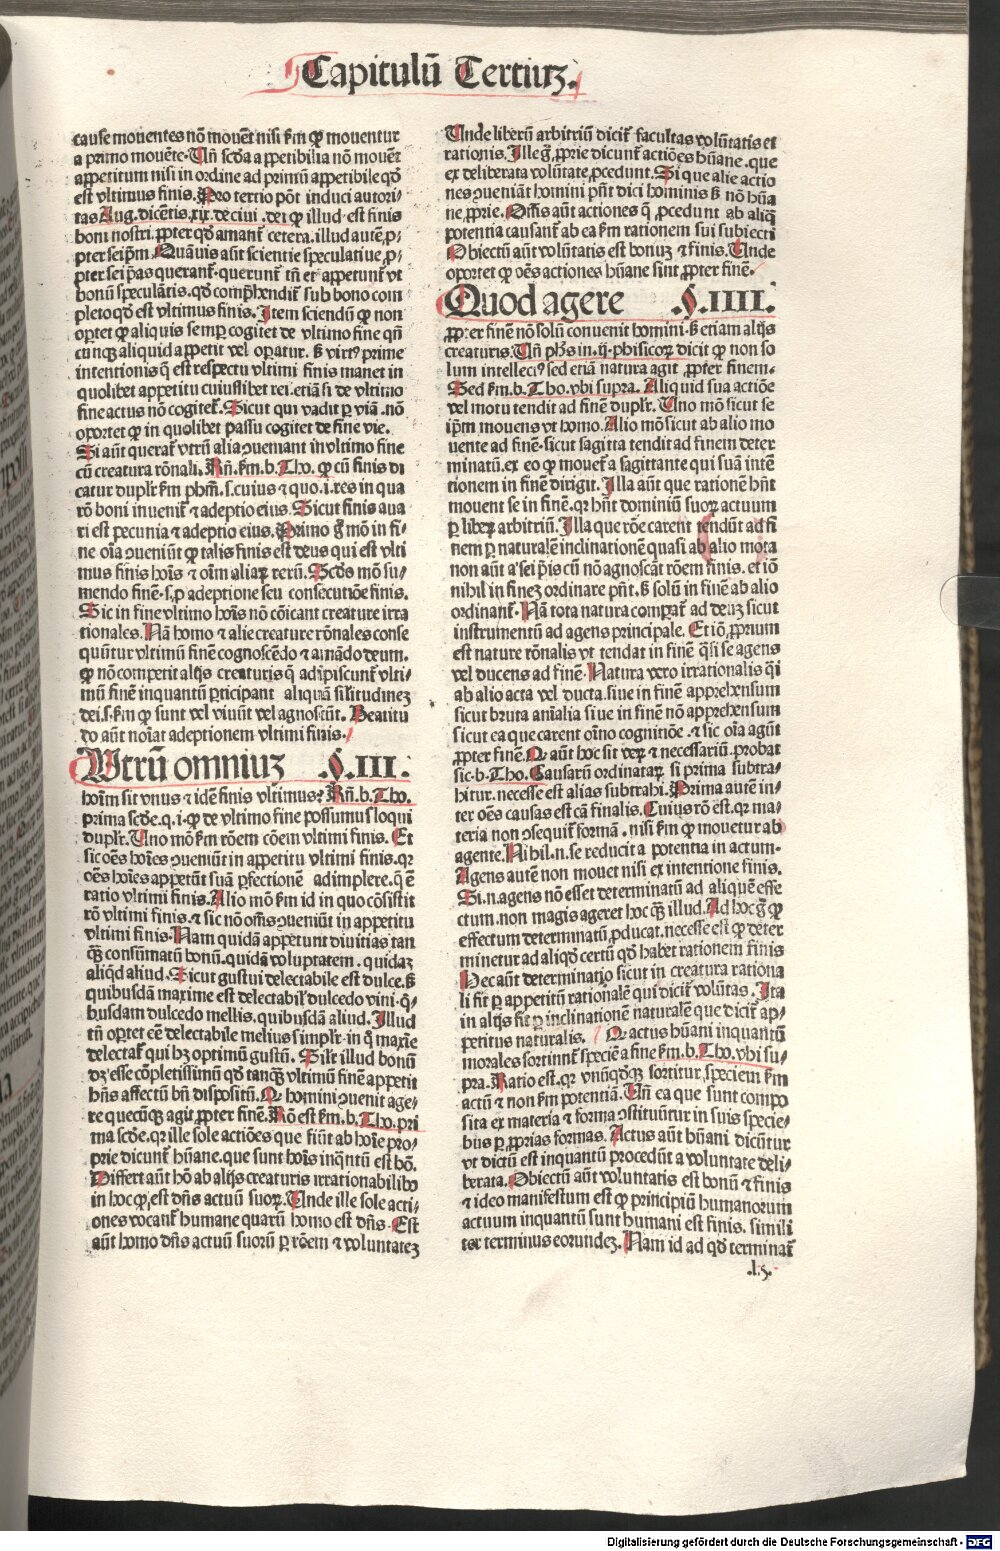 Capitulū Tertiuꝫ.
cause mouentes nō mouēt nisi ẜm ꝙ mouentur
a primo mouēte. Uñ scḋa appetibilia nō mouēt
appetitum nisi in ordine ad primū appetibile qḋ
est vltimus finis. Pro tertio pōt induci autori⸗
tas Aug. dicētis .xix. de ciui. dei ꝙ illud est finis
boni nostri. ꝓpter qḋ amant᷑ cetera. illud autē ꝓ⸗
pter seip̄m. Quāuis aūt scientie speculatiue ꝓ⸗
pter seip̄as querant᷑. querunt᷑ tñ et appetunt᷑ vt
bonū speculātis. qḋ comp̄hendit᷑ sub bono com
pleto qḋ est vltimus finis. Item sciendū ꝙ non
oportet ꝙ aliquis semꝑ cogitet de vltimo fine qñ
cunqꝫ aliquid appetit vel operatur. ß virtꝰ prime
intentionis q̄ est respectu vltimi finis manet in
quolibet appetitu cuiuslibet rei. etiā si de vltimo
fine actus nō cogitet᷑. Sicut qui vadit ꝑ viā .nō
oportet ꝙ in quolibet passu cogitet de fine vie.
Si aūt querat᷑ vtrū alia ꝯueniant in vltimo fine
cū creatura rōnali. Rñ. ẜm .b. Tho. ꝙ cū finis di
catur duplr̄ ẜm phm̄ .s. cuius ⁊ quo .i. res in qua
rō boni inuenit᷑ ⁊ adeptio eius. Sicut finis aua
ri est pecunia ⁊ adeptio eius. Primo g̊ mō in fi⸗
ne oīa ꝯueniūt ꝙ talis finis est deus qui est vlti
mus finis hoīs ⁊ oīm aliaꝝ rerū. Scḋo mō su⸗
mendo finē .s. ꝓ adeptione seu consecutiōe finis.
Sic in fine vltimo hoīs nō cōicant creature irra
tionales. Nā homo ⁊ alie creature rōnales conse
quūtur vltimū finē cognoscēdo ⁊ amādo deum.
ꝙ nō competit alijs creaturis q̄ adipiscunt᷑ vlti⸗
mū finē inquantū ꝑticipant aliquā sil̄itudinez
dei .s. ẜm ꝙ sunt vel viuūt vel agnoscūt. Beatitu
do aūt noīat adeptionem vltimi finis.
Utrū omniuꝫ .§. III.
hoīm sit vnus ⁊ idē finis vltimus? Rñ. b. Tho.
prima scḋe. q. i. ꝙ de vltimo fine possumus loqui
duplr̄. Uno mō ẜm rōem cōem vltimi finis. Et
sic oēs hoīes ꝯueniūt in appetitu vltimi finis. qꝛ
oēs hoīes appetūt suā ꝑfectionē adimplere. q̄ ē
ratio vltimi finis. Alio mō ẜm id in quo cōsistit
rō vltimi finis. ⁊ sic nō oēs ꝯueniūt in appetitu
vltimi finis. Nam quidā appetunt diuitias tan
qꝫ consūmatū bonū. quidā voluptatem. quidaꝫ
aliqḋ aliud. Sicut gustui delectabile est dulce. ß
quibusdā maxime est delectabil᷑ dulcedo vini. q̇⸗
busdam dulcedo mellis. quibusdā aliud. Illud
tñ oportet eē delectabile melius simplr̄. in q̊ maxīe
delectat᷑ qui hꝫ optimū gustū. Silr̄ illud bonū
oꝫ esse cōpletissimū qḋ tanqꝫ vltimū finē appetit
hñs affectū bñ dispositū. Q̇ homini ꝯuenit age⸗
re quecūqꝫ agit ꝓpter finē. Rō est ẜm .b. Tho. pri
ma scḋe. qꝛ ille sole actiōes que fiūt ab hoīe pro⸗
prie dicunt᷑ hūane. que sunt hoīs inqꝫtū est hō.
Differt aūt hō ab alijs creaturis irrationabilibꝰ
in hoc ꝙ est dñs actuū suoꝝ. Unde ille sole acti⸗
ones vocant᷑ humane quarū homo est dñs. Est
aūt homo dñs actuū suorū ꝑ rōem ⁊ voluntateꝫ
Unde liberū arbitriū dicit᷑ facultas volūtatis et
rationis. Ille g̊ ꝓprie dicunt᷑ actiōes hūane. que
ex deliberata volūtate ꝓcedunt. Si que alie actio
nes ꝯueniāt homini pñt dici hominis ß nō hūa
ne ꝓprie. Oēs aūt actiones q̄ ꝓcedunt ab aliq̄
potentia causant᷑ ab ea ẜm rationem sui subiecti
Obiectū aūt volūtatis est bonuꝫ ⁊ finis. Unde
oportet ꝙ oēs actiones hūane sint ꝓpter finē.
Quod agere .§. IIII.
ꝓpter finē nō solū conuenit homini. ß etiam alijs
creaturis. Uñ phs in .ij. phisicoꝝ dicit ꝙ non so
lum intellectꝰ sed etiā natura agit ꝓpter finem.
Sed ẜm .b. Tho. vbi supra. Aliquid sua actiōe
vel motu tendit ad finē duplr̄. Uno mō sicut se
ip̄m mouens vt homo. Alio mō sicut ab alio mo
uente ad finē. sicut sagitta tendit ad finem deter
minatū. ex eo ꝙ mouet᷑ a sagittante qui suā intē
tionem in finē dirigit. Illa aūt que rationē hñt
mouent se in finē. qꝛ hñt dominiū suoꝝ actuum
ꝑ liberꝝ arbitriū. Illa que rōe carent tendūt ad fi
nem ꝑ naturalē inclinationē quasi ab alio mota
non aūt a seip̄is cū nō agnoscāt rōem finis. et iō
nihil in fineꝫ ordinare pñt. ß solū in finē ab alio
ordinant᷑. Nā tota natura compat᷑ ad deuꝫ sicut
instrumentū ad agens principale. Et iō ꝓprium
est nature rōnalis vt tendat in finē q̄si se agens
vel ducens ad finē. Natura vero irrationalis q̄si
ab alio acta vel ducta. siue in finē apprehensum
sicut bruta aīalia siue in finē nō apprehensum
sicut ea que carent oīno cognitiōe. ⁊ sic oīa agūt
ꝓpter finē. Q̇ aūt hoc sit veꝝ ⁊ necessariū. probat
sic .b. Tho. Causarū ordinataꝝ si prima subtra⸗
hitur. necesse est alias subtrahi. Prima autē in⸗
ter oēs causas est cā finalis. Cuius rō est. qꝛ ma⸗
teria non ꝯsequit᷑ formā. nisi ẜm ꝙ mouetur ab
agente. Nihil .n. se reducit a potentia in actum.
Agens autē non mouet nisi ex intentione finis.
Si .n. agens nō esset determinatū ad aliquē effe
ctum. non magis ageret hoc qꝫ illud. Ad hoc g̊ ꝙ
effectum determinatū ꝓducat. necesse est ꝙ deter
minetur ad aliqḋ certū qḋ habet rationem finis
Hec aūt determinatio sicut in creatura rationa
li fit ꝑ appetitū rationalē qui dicit᷑ volūtas. Ita
in alijs fit ꝑ inclinationē naturalē que dicit᷑ ap⸗
petitus naturalis. Q̇ actus hūani inquantū
morales sortiunt᷑ speciē a fine ẜm .b. Tho. vbi su⸗
pra. Ratio est. qꝛ vnūqḋqꝫ sortitur speciem ẜm
actū ⁊ non ẜm potentiā. Uñ ea que sunt compo
sita ex materia ⁊ forma ꝯstituūtur in suis specie⸗
bus ꝑ ꝓprias formas. Actus aūt hūani dicūtur
vt dictū est inquantū procedūt a voluntate deli⸗
berata. Obiectū aūt voluntatis est bonū ⁊ finis
⁊ ideo manifestum est ꝙ principiū humanorum
actuum inquantū sunt humani est finis. simili
ter terminus eorundeꝫ. Nam id ad qḋ terminat᷑
.l.5.
Digitalisierung gefördert durch die Deutsche Forschungsgemeinschaft - DFG